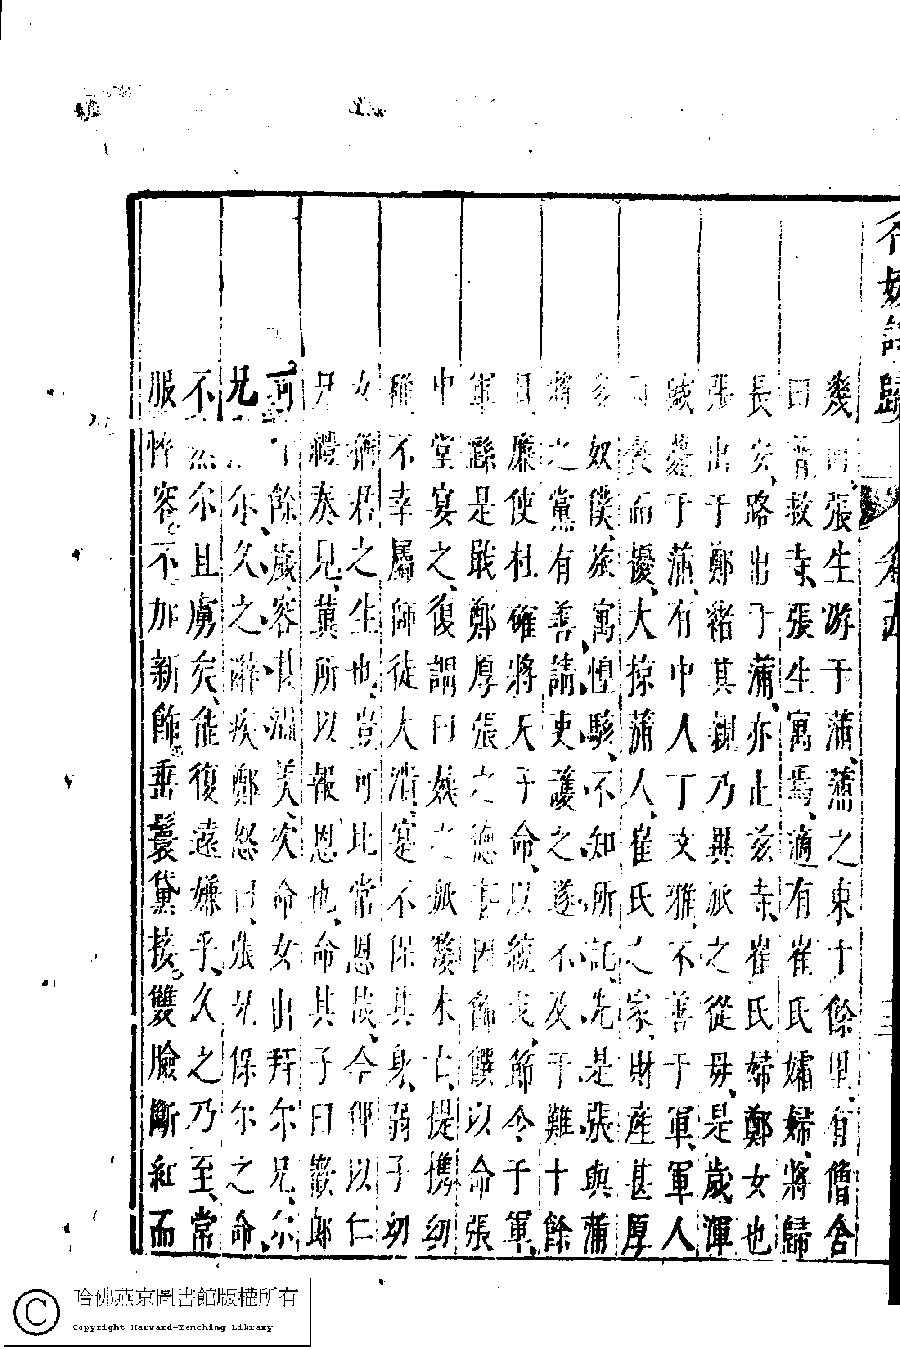 幾何張生游于蒲蒲之東十餘里有僧舍
曰普救寺張生寓焉適有崔氏孀婦將歸
長安路出于蒲亦止玆寺崔氏婦鄭女也
張出于鄭緒其親乃異派之從母是歲渾
瑊薨于蒲有中人丁文雅不善于軍軍人
因喪而擾大掠蒲人崔氏之家財産甚厚
多奴僕旅寓惶駭不知所託先是張與蒲
將之黨有善請吏護之遂不及于難十餘
日廉使杜確將天子命以統戎節令于軍
軍繇是戢鄭厚張之德甚因飾饌以命張
中堂宴之復謂曰姨之孤嫠未亡提携幼
稚不幸屬師徒大潰寔不保其身弱子幼
女猶君之生也豈可比常恩哉今俾以仁
兄禮奉見冀所以報恩也命其子曰歡郎
可十餘歲容甚溫美次命女出拜尔兄尔
兄尔久之辭疾鄭怒曰張兄保尔之命
不然尔且虜矣能復遠嫌乎久之乃至常
服悴容不加新飾垂鬟黛接雙臉斷紅而
哈佛燕京圖書館版權所有
Copyright Harvard-Yenching Library